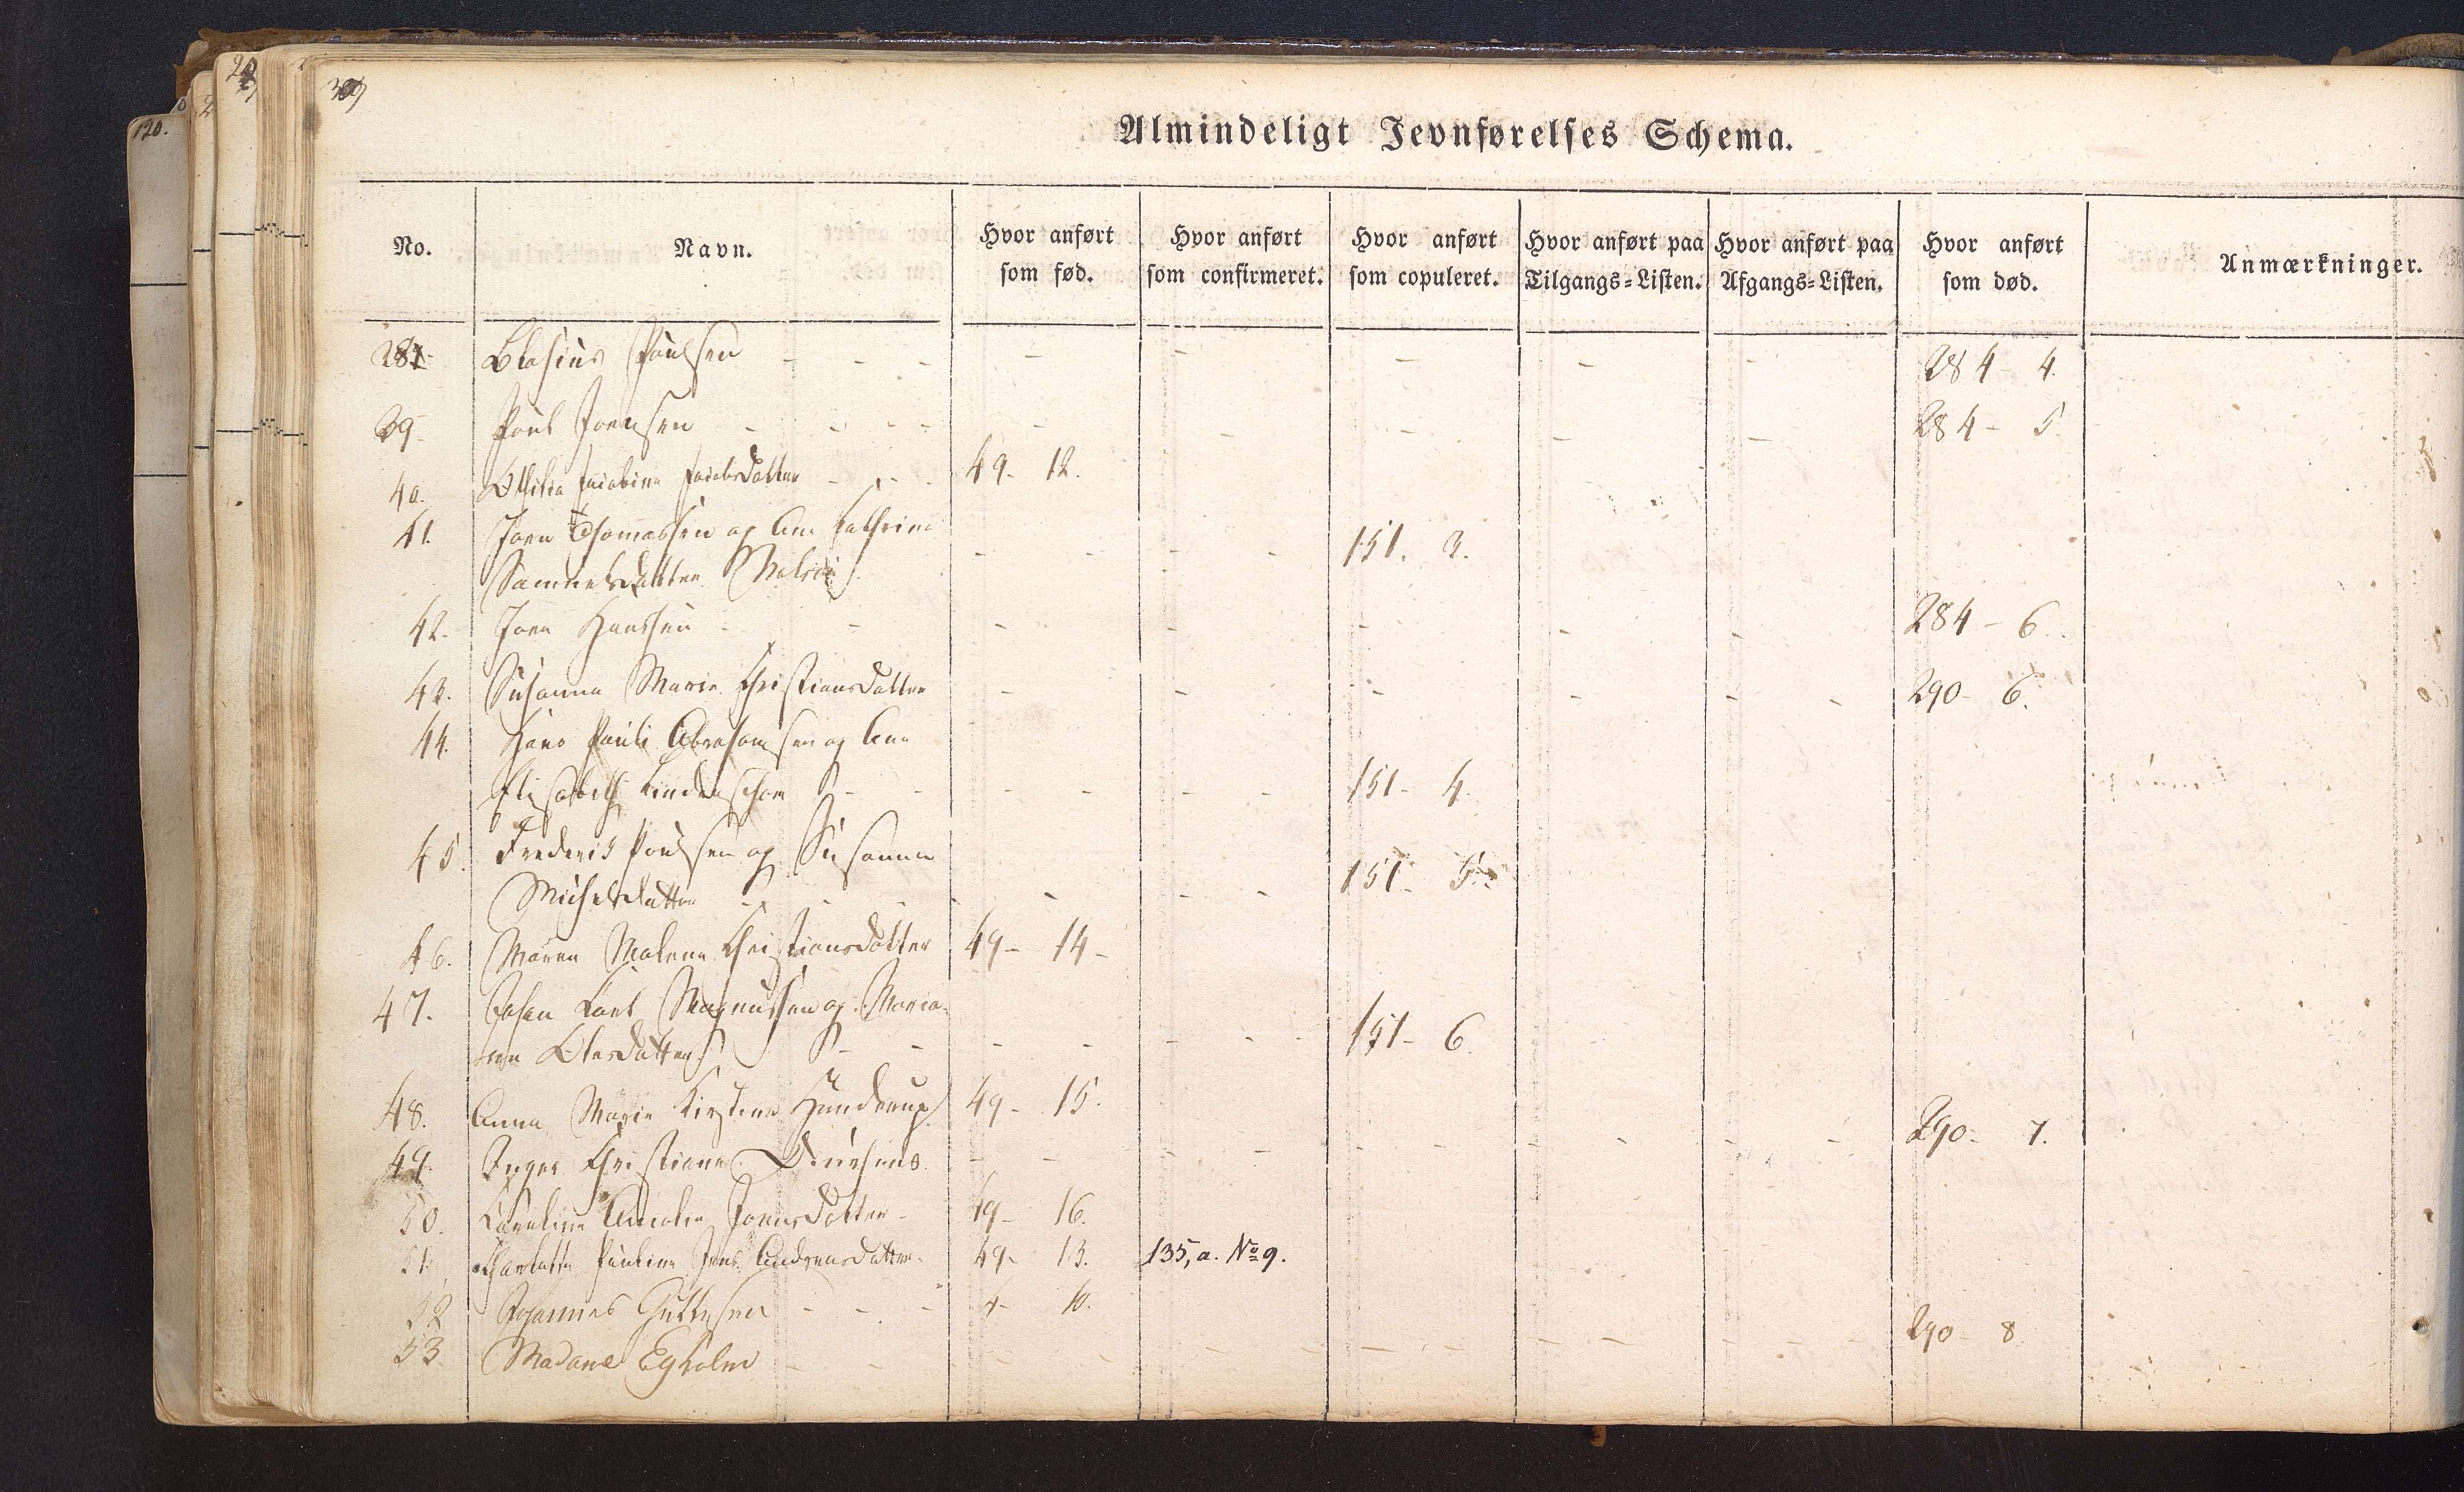 Almindeligt Jevnførelses Schema.
No. Navn. Hvor anført som fød. Hvor anført som confirmeret. Hvor anført som copuleret. Hvor anført paa Tilgangs-Listen. Hvor anført paa Afgangs-Listen. Hvor anført som død. Anmærkninger.
Blasius Poulsen - - - - - - - - 284- 4.
39. Poul Joensen - - - - - - - - - 284- 5.
40. Jacobine Jacobsdatter - - - 49- 12.
41. Joen Thomassen og Ane Cathrine
Samuelsdatter - - - - 151. 3.
42. Joen Hansen - - - - - - - 284- 6.
43. Susanna Marie Christiansdatter - - - - - - 290- 6.
44. Hans Pauli Abrahamsen og Ane
Elisabeth Lindenschou - - - - - - 151- 4.
45. Frederik Poulsen og Susanna
Michelsdatter - - - - - - 151- 5.
46. Maren Malene Christiansdatter 49- 14-
47. Johan Carl Magnussen og Maria-
ne Olesdatter - - - - - - - 151- 6.
48. Anna Marie Kirstine Hunderup 49- 15.
49. Inger Christiane - - - - - - - - - 290- 7.
50. Caroline Amalie Joensdatter - 49- 16.
51. Charlotte Pauline Jens Andreasdatter. 49- 13. 135, a. No 9.
52 Johannes Guttesen - - - 4- 10.
53. Madame Egholm - - - - - - - - - - - 290- 8.
120.